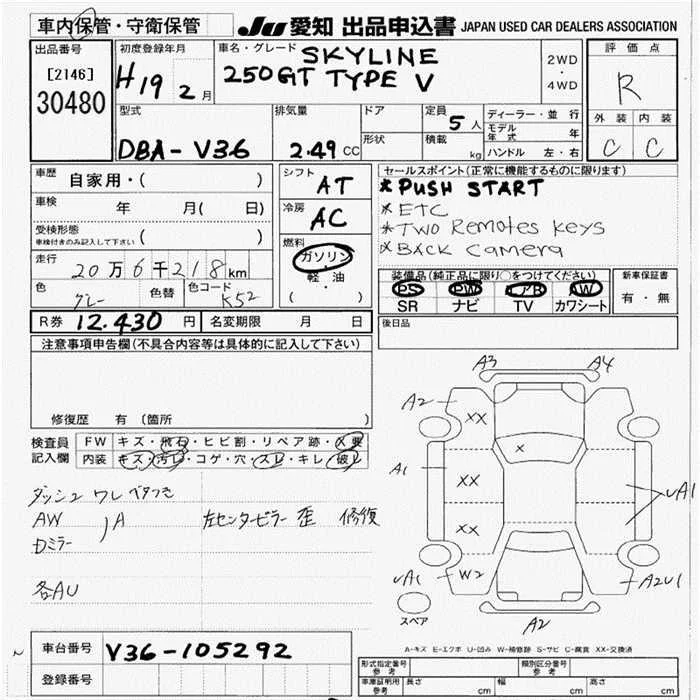 車内保管・守衛保管
JU 愛知 出品申込書 JAPAN USED CAR DEALERS ASSOCIATION
出品番号
[2146]
30480
初度登録年月
H19 2月
車名・グレード SKYLINE
250GT TYPE V
2WD
・
4WD
評価点
R
外装 内装
C C
型式
DBA-V36
排気量
2.49 CC
ドア
形状
定員 5人
積載 kg
ディーラー・並行
モデル年式 年
ハンドル 左・右
車歴 自家用・( )
車検 年 月( 日)
受検形態
車検付きのみ記入して下さい ( )
走行
20万6千218km
色 グレー 色替 色コード K52
シフト AT
冷房 AC
燃料
ガソリン
軽・油
( )
セールスポイント(正常に機能するものに限ります)
*PUSH START
*ETC
*TWO Remotes keys
*BACK Camera
装備品(純正品に限り○をつけてください)
PS PW エアB AW
SR ナビ TV カワシート
新車保証書
有・無
R券 12.430円 名変期限 月 日
後日品
注意事項申告欄(不具合内容等は具体的に記入して下さい)
修復歴 有 〔箇所 〕
検査員
記入欄
FW キズ・飛石・ヒビ割・リペア跡・X要
内装 キズ・汚レ・コゲ・穴・スレ・キレ・破レ
ダッシュ ワレ ベタつき
AW
Dミラー
A
左センターピラー 歪 修復
各AU
A3 A4
A2
XX
X
A1
XX
A1
XX
A1
W2
A2U1
A2
スペア
A-キズ E-エクボ U-凹み W-補修跡 S-サビ C-腐食 XX-交換済
車台番号 V36-105292
登録番号
形式指定番号
参考
類別区分番号
参考
車庫証明用
参考
長さ cm 幅 cm 高さ cm